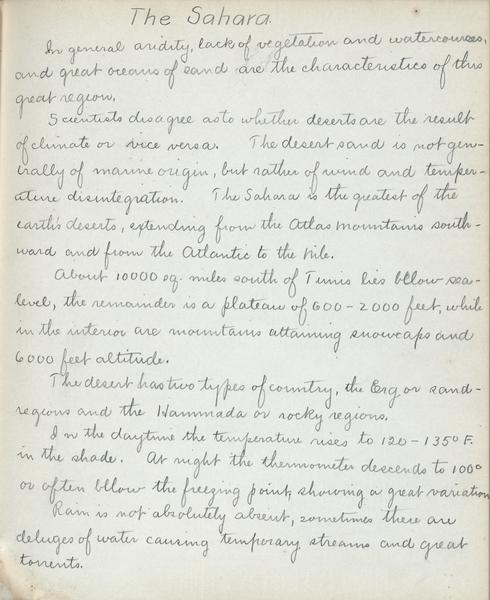 The Sahara.
In general aridity, lack of vegetation and watercourses,
and great oceans of sand are the characteristics of this
great region.
Scientists disagree as to whether deserts are the result
of climate or vice versa. The desert sand is not gen-
erally of marine origin, but rather of wind and temper-
ature disintegration. The Sahara is the greatest of the
earth's deserts, extending from the Atlas Mountains south-
ward and from the Atlantic to the Nile.
About 10000 sq. miles south of Tunis lies bllow sea-
level, the remainder is a plateau of 600-2000 feet, while
in the interior are mountains attaining snowcaps and
6000 feet altitude.
The desert has two types of country, the Erg or sand-
regions and the Hammada or rocky regions.
In the daytime the temperature rises to 120-135° F.
in the shade. At night the thermometer descends to 100°
or often bllow the freezing point, showing a great variation
Rain is not absolutely absent, sometimes there are
deluges of water causing temporary streams and great
torrents.